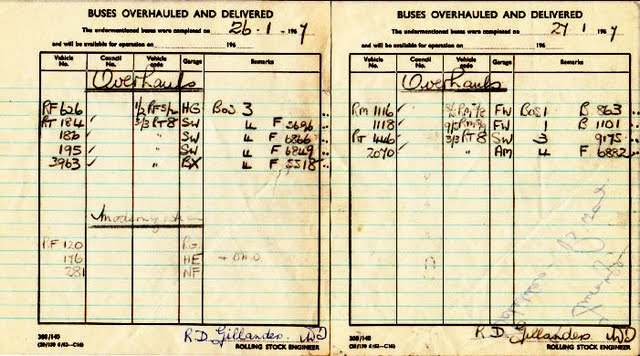 BUSES OVERHAULED AND DELIVERED
The undermentioned buses were completed on 26 · 1 · 1967
and will be available for operation on 196
Vehicle No. Council No. Vehicle code Garage Remarks
Overhauls
RF 626 HG Box 3
RT 184 ✓ 3/3 RT8 SW 4 F 5696
186 ✓ " SW 4 F 6866
195 ✓ " SW 4 F 6849
3963 ✓ " BX 4 F 5518
Modernisation
RF 120 RG
176 HE
281 NF
R.D. Gillanders
308/140
ROLLING STOCK ENGINEER
BUSES OVERHAULED AND DELIVERED
The undermentioned buses were completed on 27 1 1967
and will be available for operation on 196
Vehicle No. Council No. Vehicle code Garage Remarks
Overhauls
RM 1116 ✓ FW Box 1 B 863
1118 ✓ FW 1 B 1101
RT 446 ✓ 3/3 RT8 SW 3 9175
2070 ✓ " AM 4 F 6882
R.D. Gillanders
308/140
ROLLING STOCK ENGINEER